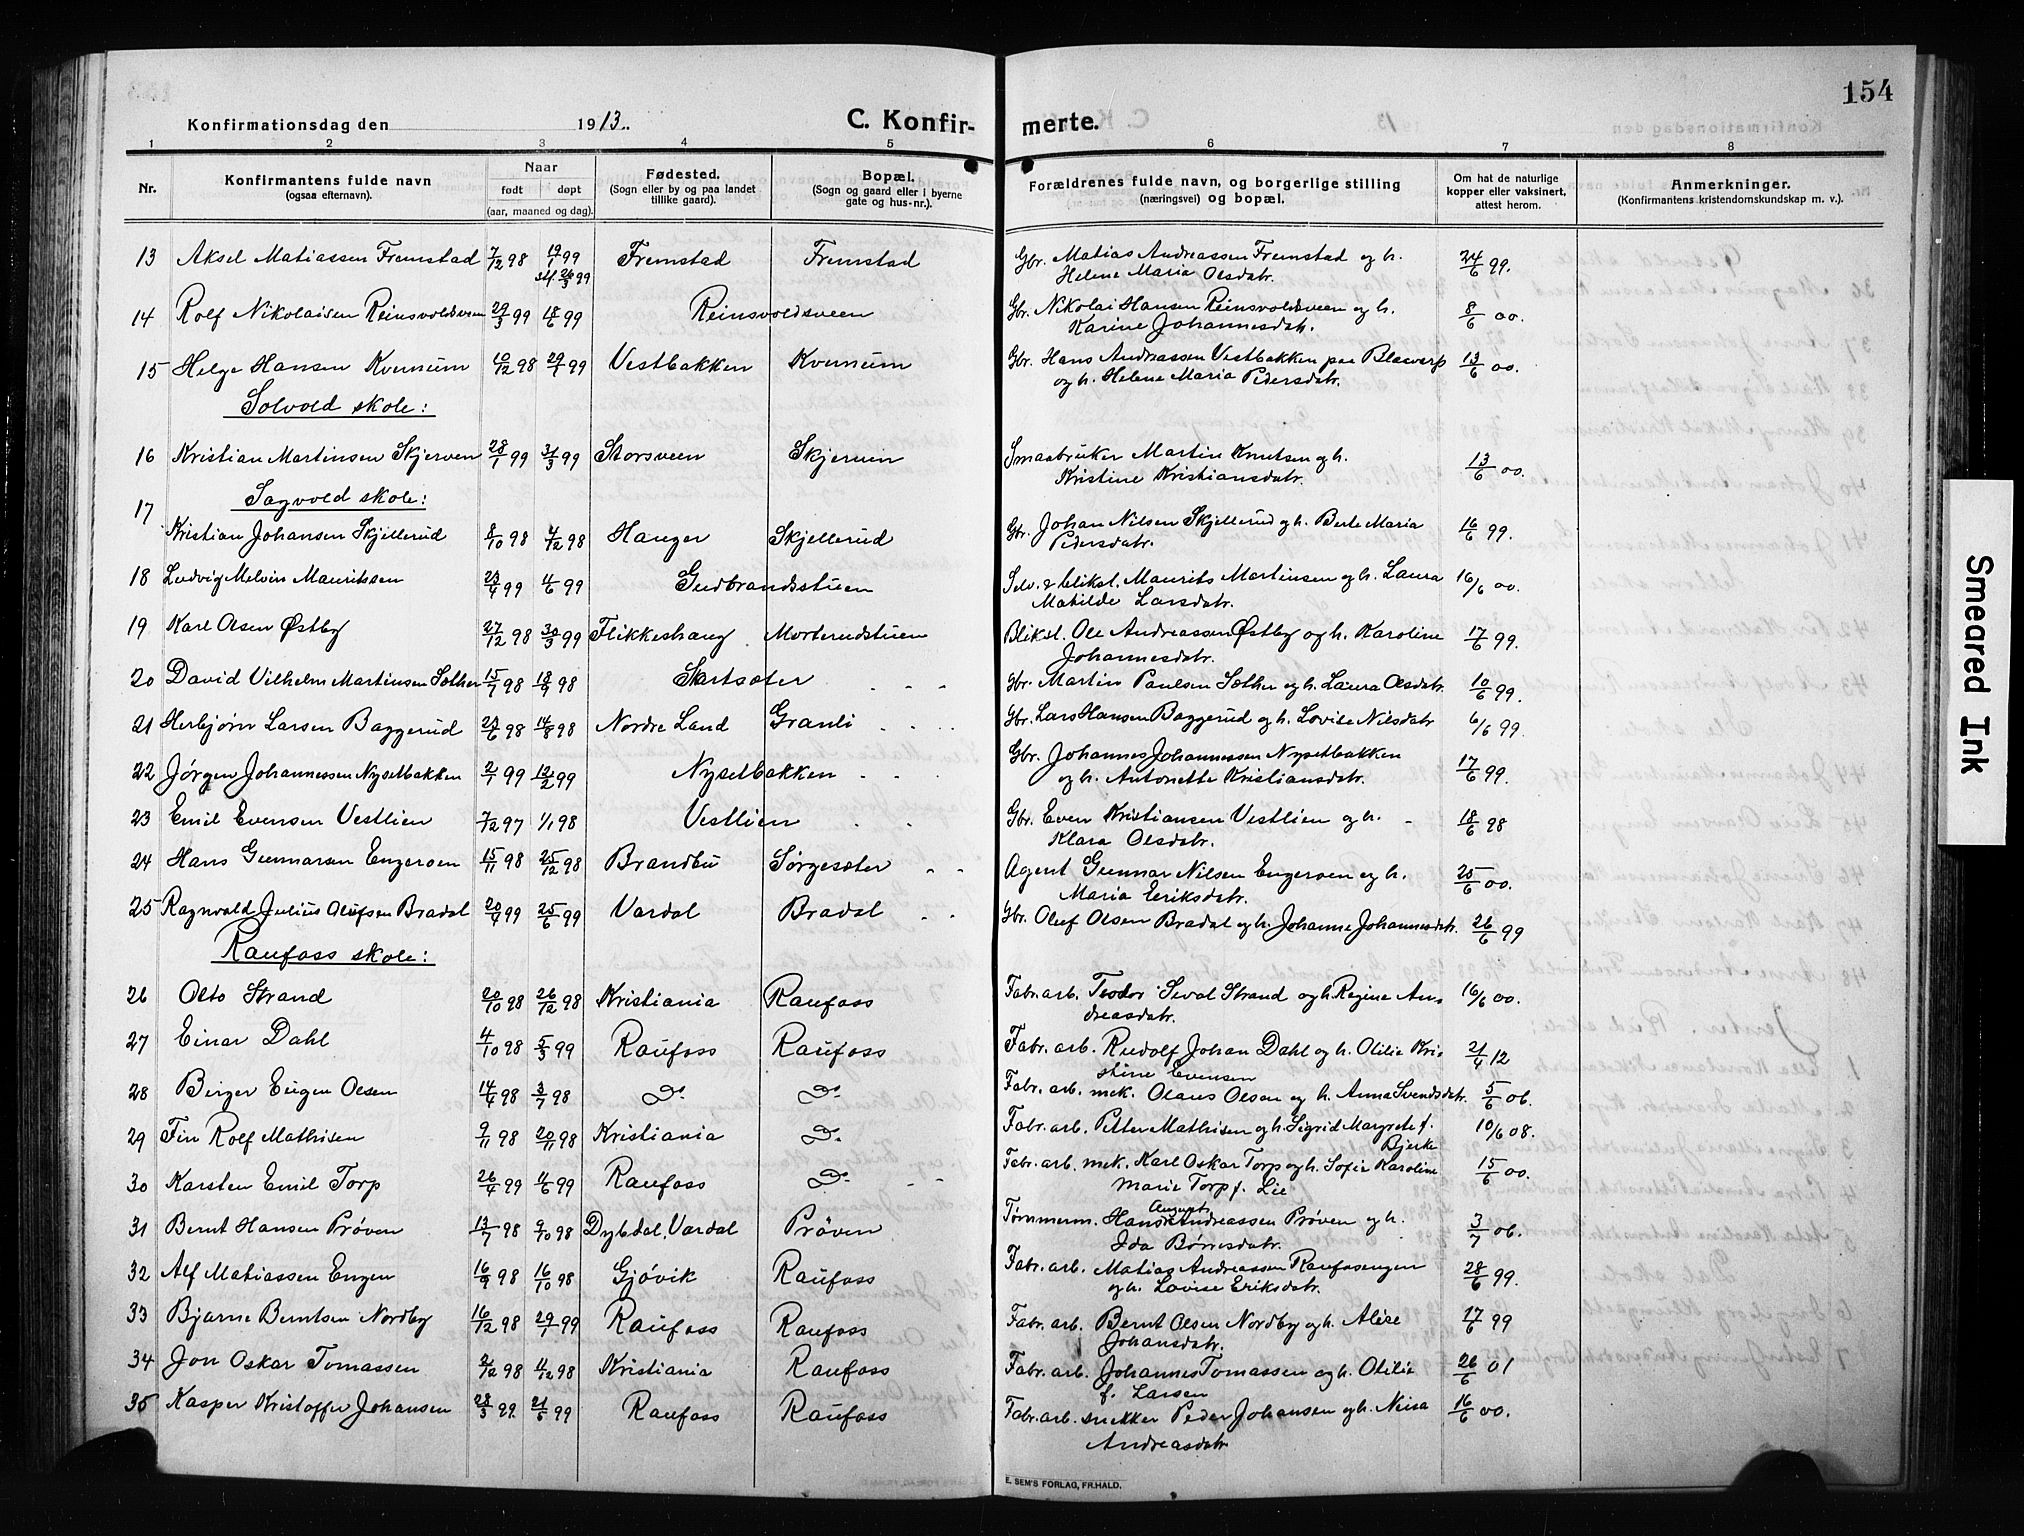 154
Konfirmationsdag den 1913. C. Konfirmerte.
1 2 3 4 5 6 7 8
Nr. Konfirmantens fulde navn (ogsaa efternavn). Naar født døpt (aar, maaned og dag). Fødested. (Sogn eller by og paa landet tillike gaard). Bopæl. (Sogn og gaard eller i byerne gate og hus-nr.). Forældrenes fulde navn, og borgerlige stilling (næringsvei) og bopæl. Om hat de naturlige kopper eller vaksinert, attest herom. Anmerkninger. (Konfirmantens kristendomskundskap m. v.).
13 Aksel Matiassen Fremstad 7/12 98 19/1 99 26/3 99 Fremstad Fremstad Gbr. Matias Andreassen Fremstad og h. Helene Maria Olsdatr. 24/6 99.
14 Rolf Nikolaisen Reinsvoldsveen 29/3 99 18/6 99 Reinsvoldsveen Gbr. Nikolai Hansen Reinsvoldsveen og h. Karine Johannesdatr. 8/6 00.
15 Helge Hansen Kvernum 10/12 98 29/1 99 Vestbakken Kvernum Gbr. Hans Andreassen Vestbakken paa Blæverp og h. Helene Maria Pedersdatr. 13/6 00.
Solvold skole:
16 Kristian Martinsen Skjerven 28/1 99 31/3 99 Storsveen Skjerven Smaabruker Martin Knutsen og h. Kristine Kristiansdatr. 13/6 00.
Sagvold skole:
17 Kristian Johansen Skjellerud 8/10 98 4/12 98 Hanger Skjellerud Gbr. Johan Nilsen Skjellerud og h. Berte Maria Pedersdatr. 16/6 99.
18 Ludvig Melvin Mauritssen 23/4 99 4/6 99 Gudbrandsstuen Selv. & blikst. Maurits Martinsen og h. Laura Matilde Larsdatr. 16/6 00.
19 Karl Olsen Østby 27/12 98 30/3 99 Flikkeshaug Morterudstuen Blikst. Ole Andreassen Østby og h. Karoline Johannesdatr. 17/6 99.
20 David Vilhelm Martinsen Sæther 15/7 98 18/9 98 Skartsæter Gbr. Martin Paulsen Sæther og h. Laura Olsdatr. 10/6 99.
21 Herbjørn Larsen Baggerud 23/6 98 14/8 98 Nordre Land Granli Gbr. Lars Hansen Baggerud og h. Lovise Nilsdatr 6/6 99.
22 Jørgen Johannessen Nysetbakken 2/1 99 12/2 99 Nysetbakken Gbr. Johannes Johannessen Nysetbakken og h. Antonette Kristiansdatr. 17/6 99.
23 Emil Evensen Vestlien 7/12 97 1/1 98 Vestlien Gbr. Even Kristiansen Vestlien og h. Klara Olsdatr. 18/6 98
24 Hans Gunnarsen Engeroen 15/11 98 25/12 98 Brandbu Sørgesæter Agent Gunnar Nilsen Engeroen og h. Maria Eriksdatr. 25/6 00.
25 Ragnvald Julius Olufsen Bradal 20/4 99 25/6 99 Vardal Bradal Gbr. Oluf Olsen Bradal og h. Johanne Johannesdatr. 26/6 99
Raufoss skole:
26 Otto Strand 20/10 98 26/12 98 Kristiania Raufoss Fabr. arb. Teodor Sival Strand og h. Regine Andreasdatr. 16/6 00.
27 Einar Dahl 4/10 98 5/3 99 Raufoss Raufoss Fabr. arb. Rudolf Johan Dahl og h. Otilie Kristine Evensen 21/4 12
28 Birger Eugen Olsen 14/4 98 3/7 98 Do Do Fabr. arb. mek. Olaus Olsen og h. Anna Svendsdatr. 5/6 06.
29 Fin Rolf Mathisen 9/11 98 20/11 98 Kristiania Do Fabr. arb. Petter Mathisen og h. Sigrid Margrete f. Bjerke 10/6 08.
30 Karsten Emil Torp 26/4 99 11/6 99 Raufoss Do Fabr. arb. mek. Karl Oskar Torp og h. Sofie Karoline Marie Torp f. Lie 15/6 00.
31 Bernt Hansen Prøven 13/7 98 9/10 98 Dybdal, Vardal Prøven Tømmerm. Hans August Andreassen Prøven og h. Ida Børresdatr. 3/7 06.
32 Alf Matiassen Engen 16/9 98 16/10 98 Gjøvik Raufoss Fabr. arb. Matias Andreassen Raufossengen og h. Lovise Eriksdatr. 28/6 99.
33 Bjarne Berntsen Nordby 16/12 98 29/1 99 Raufoss Raufoss Fabr. arb. Bernt Olsen Nordby og h. Alise Johansdatr. 17/6 99
34 Jon Oskar Tomassen 2/12 98 11/12 98 Kristiania Raufoss Fabr. arb. Johannes Tomassen og h. Otilie f. Larsen 26/6 01
35 Kasper Kristoffer Johansen 28/3 99. 21/5 99 Raufoss Raufoss Fabr. arb. snekker Peder Johansen og h. Nina Andreasdatr 16/6 00.
E. SEM'S FORLAG, FR.HALD.
Smeared Ink